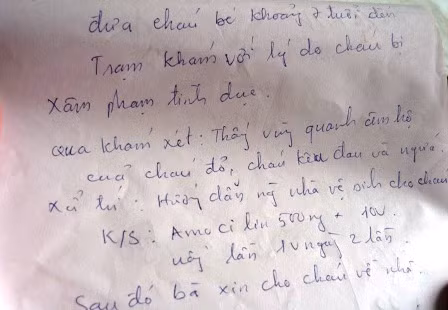 đưa cháu bé khoảng 7 tuổi đến
Trạm khám với lý do cháu bị
xâm phạm tình dục.
qua khám xét: Thấy vùng quanh âm hộ
của cháu đỏ, cháu kêu đau và ngứa.
xử trí: Hướng dẫn ng nhà vệ sinh cho cháu
K/S: Amoci lin 500mg + 10v.
uống lần 1v ngày 2 lần.
Sau đó bà xin cho cháu về nhà.